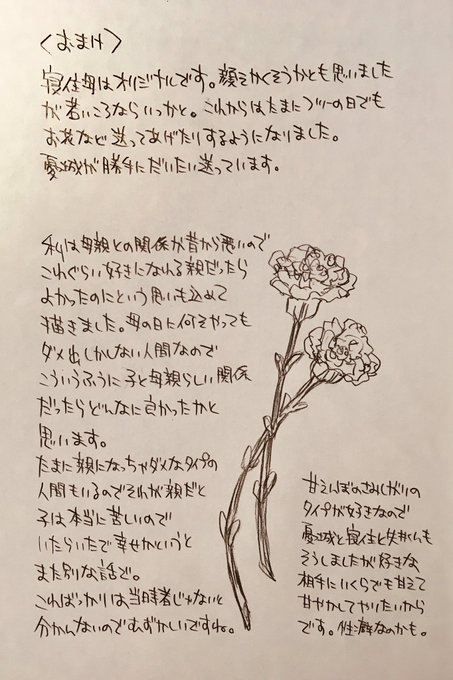 〈おまけ〉
寝住母はオリジナルです。顔そかくそうかとも思いました
が若いころならいっかと。これからはたまにフツーの日でも
お花など送ってあげたりするようになりました。
憂城が勝手にだいたい送っています。
私は母親との関係が昔から悪いので
これぐらい好きになれる親だったら
よかったのにという思いも込めて
描きました。母の日に何をやっても
ダメ出ししかしない人間なので
こういうふうに子と母親らしい関係
だったらどんなに良かったかと
思います。
たまに親になっちゃダメなタイプの
人間もいるのでそれが親だと
子は本当に苦しいので
いたらいたで幸せかというと
また別な話で。
こればっかりは当時者じゃないと
分かんないのでむずかしいですね。
甘えんぼのさみしがりの
タイプが好きなので
憂城と寝住と失井くんも
そうしましたが好きな
相手にいくらでも甘えて
甘やかしてやりたいから
です。性癖なのかも。